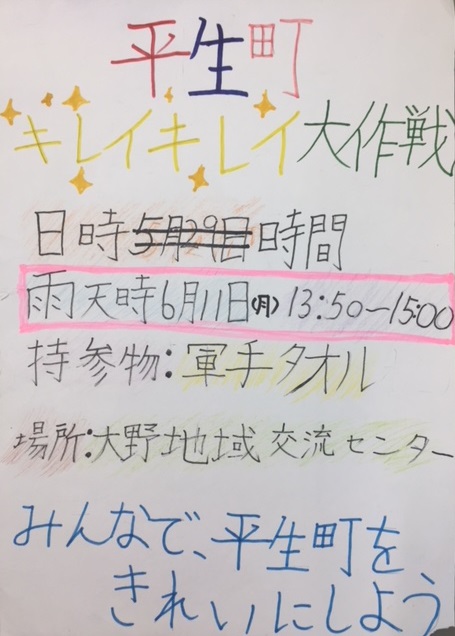 平生町
キレイキレイ大作戦
日時5月29日時間
雨天時6月11日(月) 13:50～15:00
持参物:軍手タオル
場所:大野地域交流センター
みんなで、平生町を
きれいにしよう